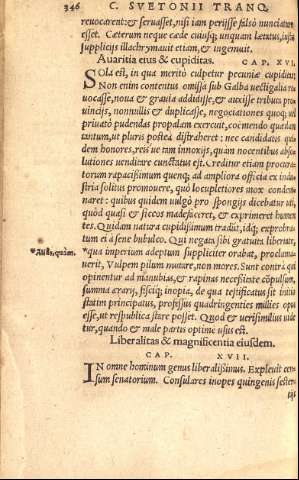 346 C. SVETONII TRANQ.
reuocarent: & seruasset, nisi iam perijsse falsò nunciatum
esset. Cæterum neque cæde cuiusq; unquam lætatus, iustis
supplicijs illachrymauit etiam, & ingemuit.
Auaritia eius & cupiditas. CAP. XVI.
SOla est, in qua meritò culpetur pecuniæ cupiditas.
Non enim contentus omissa sub Galba uectigalia re
uocasse, noua & grauia addidisse, & auxisse tributa pro
uincijs, nonnullis & duplicasse, negociationes quoq; uel
priuato pudendas propalam exercuit, coëmendo quædam
tantum, ut pluris postea distraheret: nec candidatis qui
dem honores, reis ue tam innoxijs, quàm nocentibus abso
lutiones uenditare cunctatus est. Creditur etiam procura
torum rapacissimum quenq; ad ampliora officia ex indu
stria solitus promouere, quò locupletiores mox condem
naret: quibus quidem uulgò pro spongijs dicebatur uti,
quòd quasi & siccos madefaceret, & exprimeret humen
tes. Quidam natura cupidissimum tradit, idq; exprobra
tum ei à sene bubulco. Qui negata sibi gratuita libertate,
*Aliâs, quàm. *qua imperium adeptum suppliciter orabat, proclama
uerit, Vulpem pilum mutare, non mores. Sunt contrà qui
opinentur ad manubias, & rapinas necessitate cōpulsum,
summa ærarij, fisciq; inopia, de qua testificatus sit initio
statim principatus, professus quadringenties millies opus
esse, ut respublica stare posset. Quod & uerisimilius uide
tur, quando & male partis optime usus est.
Liberalitas & magnificentia eiusdem.
CAP. XVII.
IN omne hominum genus liberalissimus. Expleuit cen
sum senatorium. Consulares inopes quingenis sester=
tijs